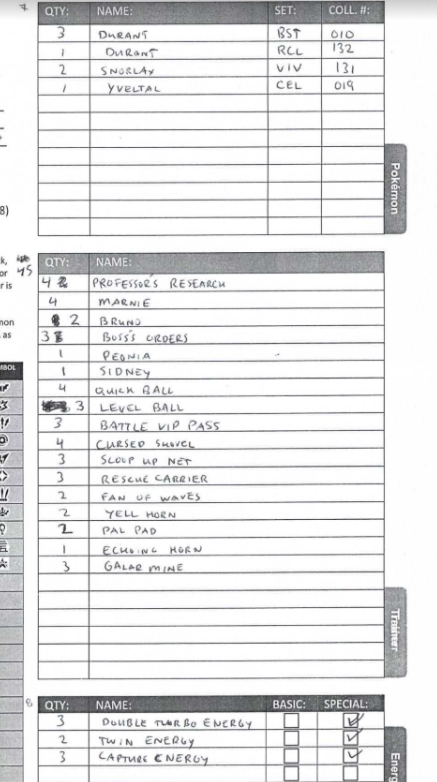 7
QTY: NAME: SET: COLL. #:
3 DURANT BST 010
1 DURANT RCL 132
2 SNORLAX VIV 131
1 YVELTAL CEL 019
Pokémon
8)
k,
or 45
r is
mon
as
MBOL
QTY: NAME:
4 PROFESSOR'S RESEARCH
4 MARNIE
2 BRUNO
3 BOSS'S ORDERS
1 PEONIA
1 SIDNEY
4 QUICK BALL
3 LEVEL BALL
3 BATTLE VIP PASS
4 CURSED SHOVEL
3 SCOOP UP NET
3 RESCUE CARRIER
2 FAN OF WAVES
2 YELL HORN
2 PAL PAD
1 ECHOING HORN
3 GALAR MINE
Trainer
8
QTY: NAME: BASIC: SPECIAL:
3 DOUBLE TURBO ENERGY
2 TWIN ENERGY
3 CAPTURE ENERGY
Energ